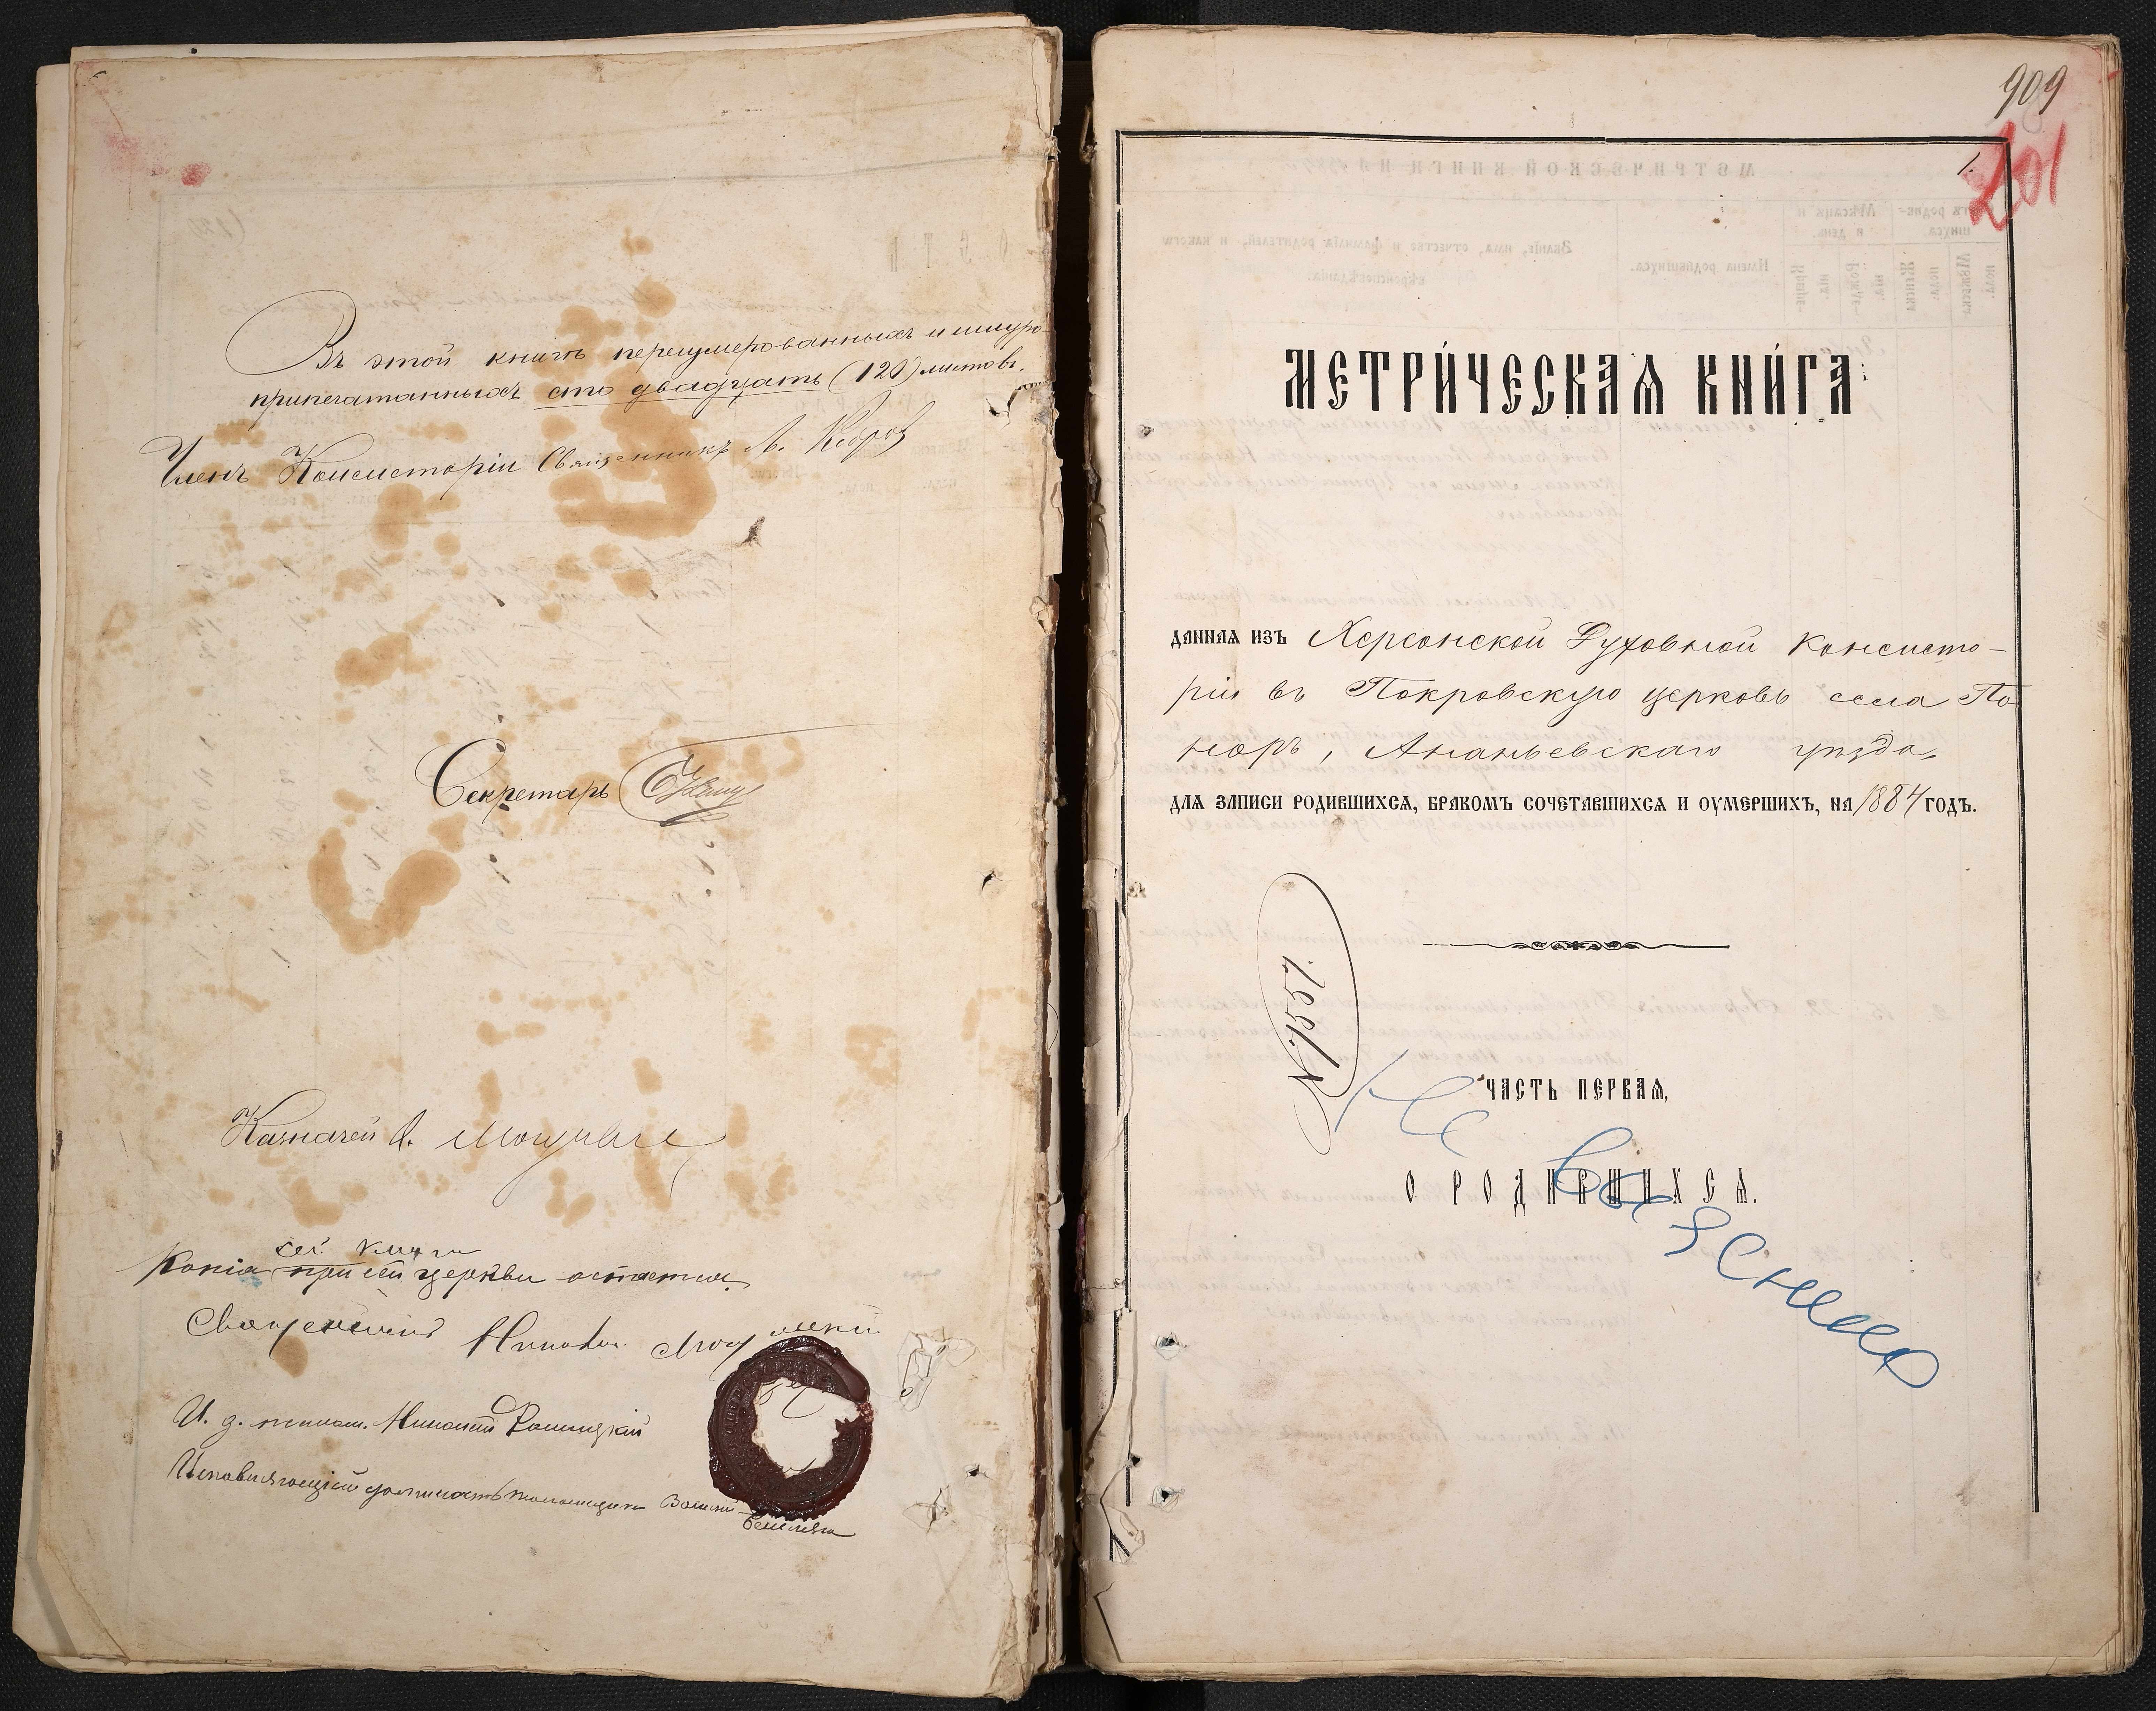 Въ этой книгѣ перенумерованныхъ и шнуро-
припечатанныхъ сто двадцать (120) листовъ.
Членъ Консисторіи Священникъ А. Кедров
Секретарь
Казначей
сей книги
Копія при сей церкви остается.
Священникъ Николай
И. д. псалом. Николай
Исправляющій должность псаломщика
909
201
1.
МЕТРИ́ЧЕСКАѦ КНИ́ГА
ДАННАѦ ИЗЪ Херсонской Духовной Консисто-
ріи въ Покровскую церковь села По-
норъ, Ананьевскаго уѣзда,
ДЛѦ ЗАПИСИ РОДИВШИХСѦ, БРАКОМЪ СОЧЕТАВШИХСѦ И ОУМЕРШИХЪ, НА 1884 ГОДЪ.
№ 1551.
ЧАСТЬ ПЕРВАѦ,
О РОДИВШИХСѦ.